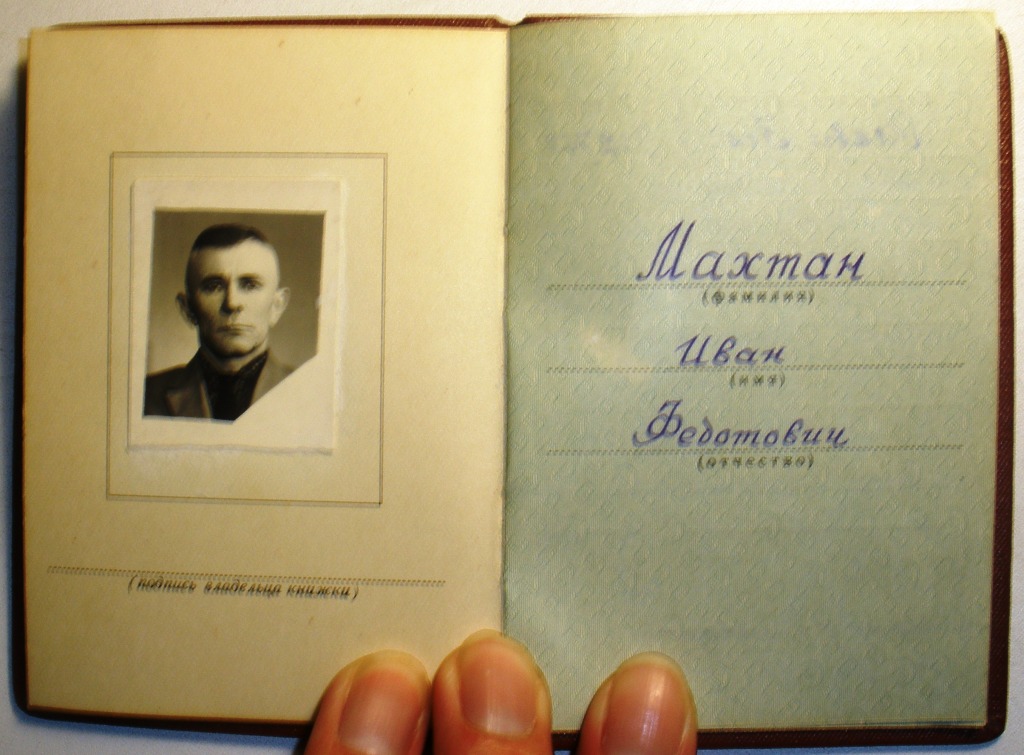 (подпись владельца книжки)
Махтан
(фамилия)
Иван
(имя)
Федотович
(отчество)